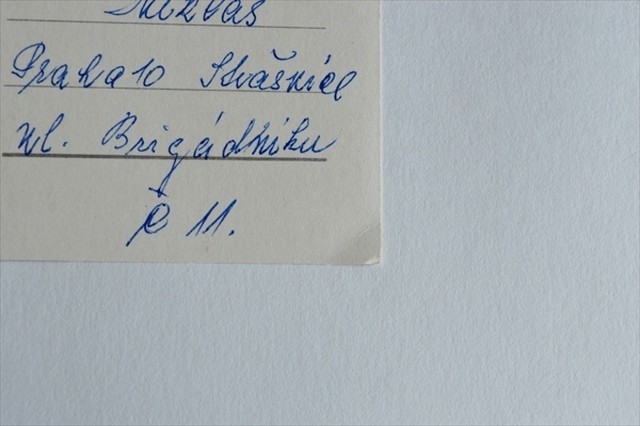 Praha 10 Strašnice
ul. Brigádníku
č 11.